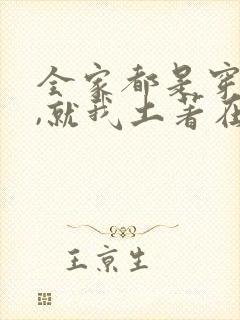 全家都是穿
,就我土著在
王京生